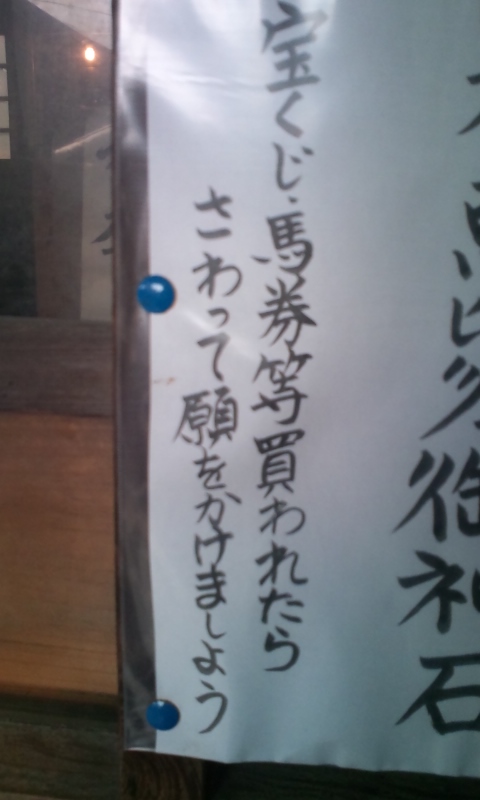 御神石
宝くじ、馬券等買われたら
さわって願をかけましょう